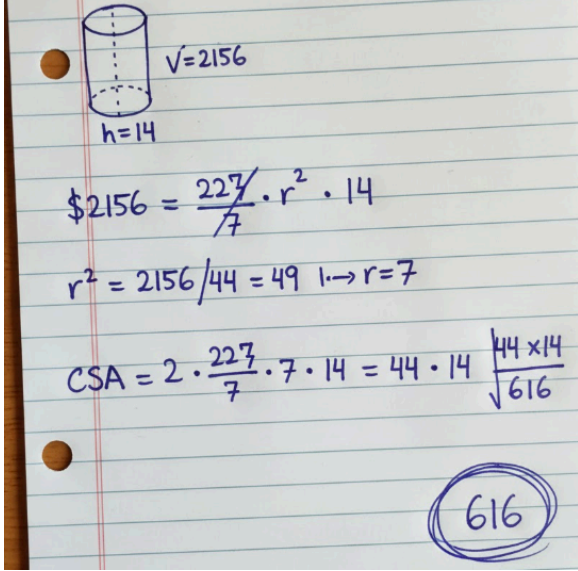 V=2156
h=14
$2156 = 227/7 · r² · 14
r² = 2156/44 = 49 ↦ r=7
CSA = 2 · 227/7 · 7 · 14 = 44 · 14 44 ×14
√616
616